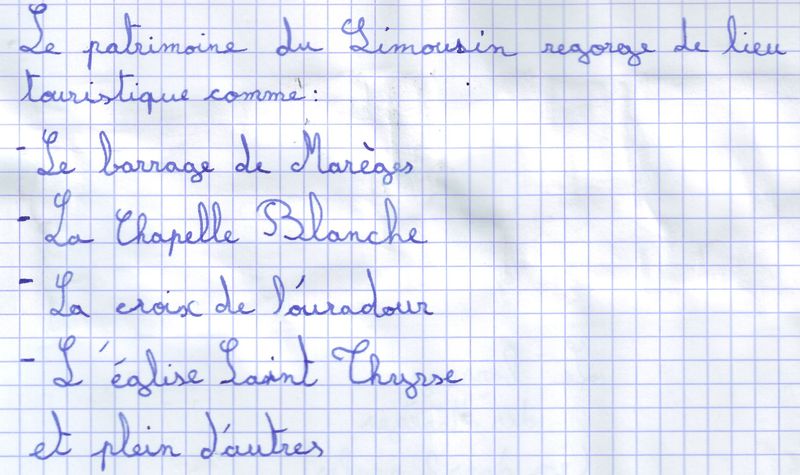 Le patrimoine du Limousin regorge de lieu
touristique comme :
- Le barrage de Marèges
- La Chapelle Blanche
- La croix de l'ouradour
- L'église Saint Thyrse
et plein d'autres